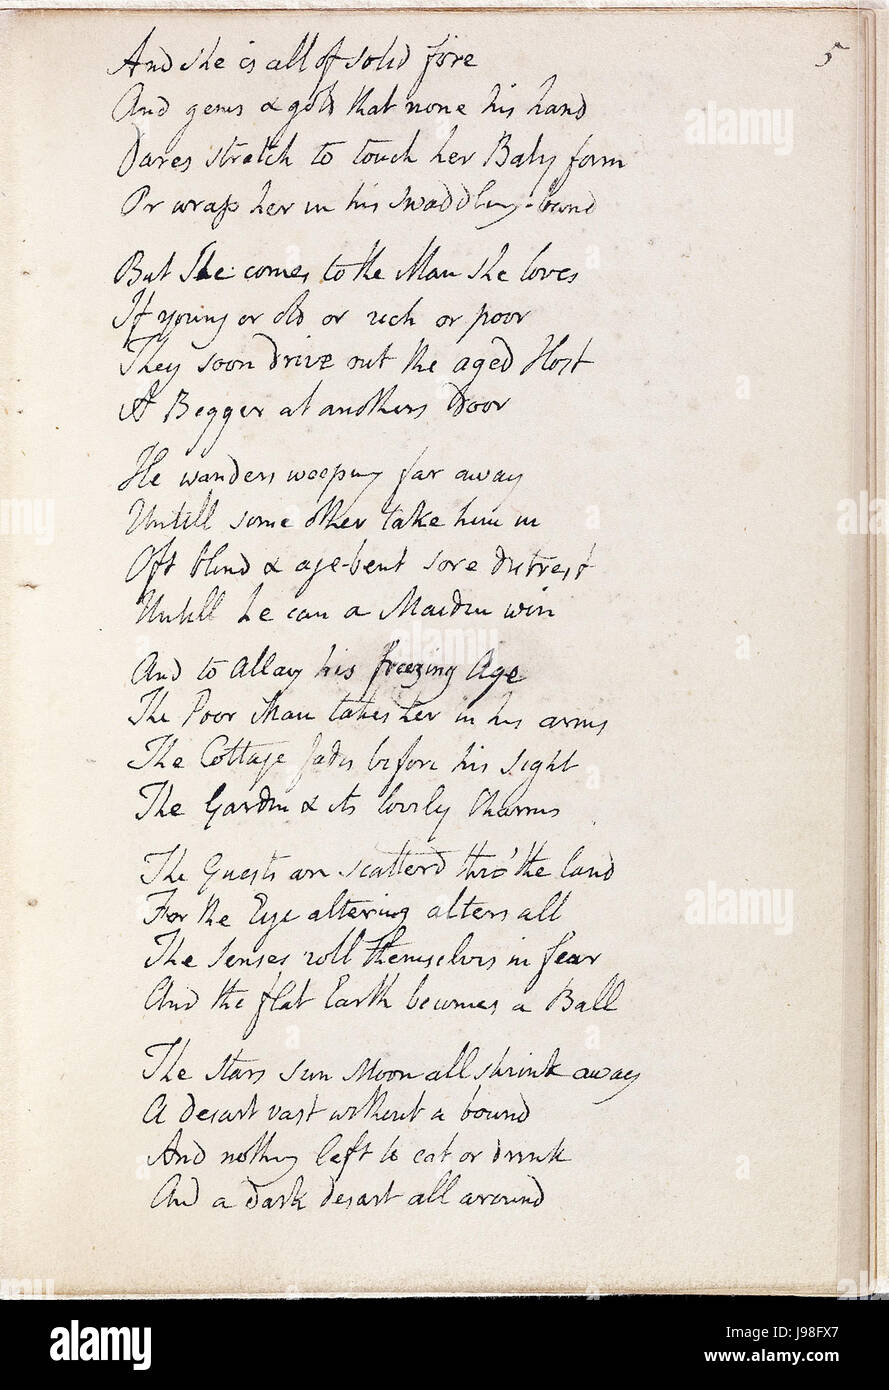 5
And she is all of solid fire
And gems & gold that none his hand
Dares stretch to touch her Baby form
Or wrap her in his swaddling-band
But She comes to the Man she loves
If young or old or rich or poor
They soon drive out the aged Host
A Begger at anothers Door
He wanders weeping far away
Untill some other take him in
Oft blind & age-bent sore distrest
Untill he can a Maiden win
And to allay his freezing Age
The Poor Man takes her in his arms
The Cottage fades before his sight
The Garden & its lovely Charms
The Guests are scatterd thro' the land
For the Eye altering alters all
The Senses roll themselves in fear
And the flat Earth becomes a Ball
The Stars Sun Moon all shrink away
A desart vast without a bound
And nothing left to eat or drink
And a dark desart all around
alamy
Image ID: J98FX7
www.alamy.com